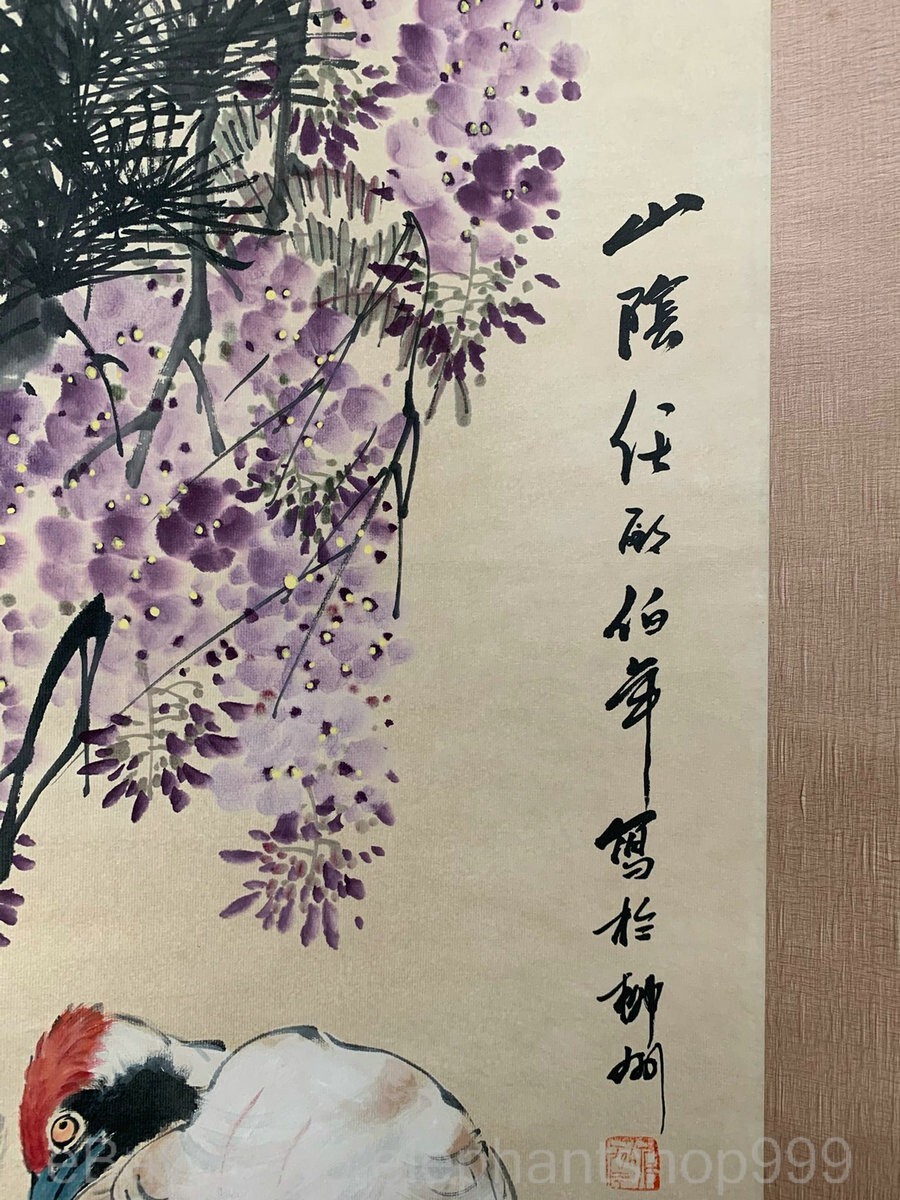 山陰任頤伯年寫於柳州
elephantshop999